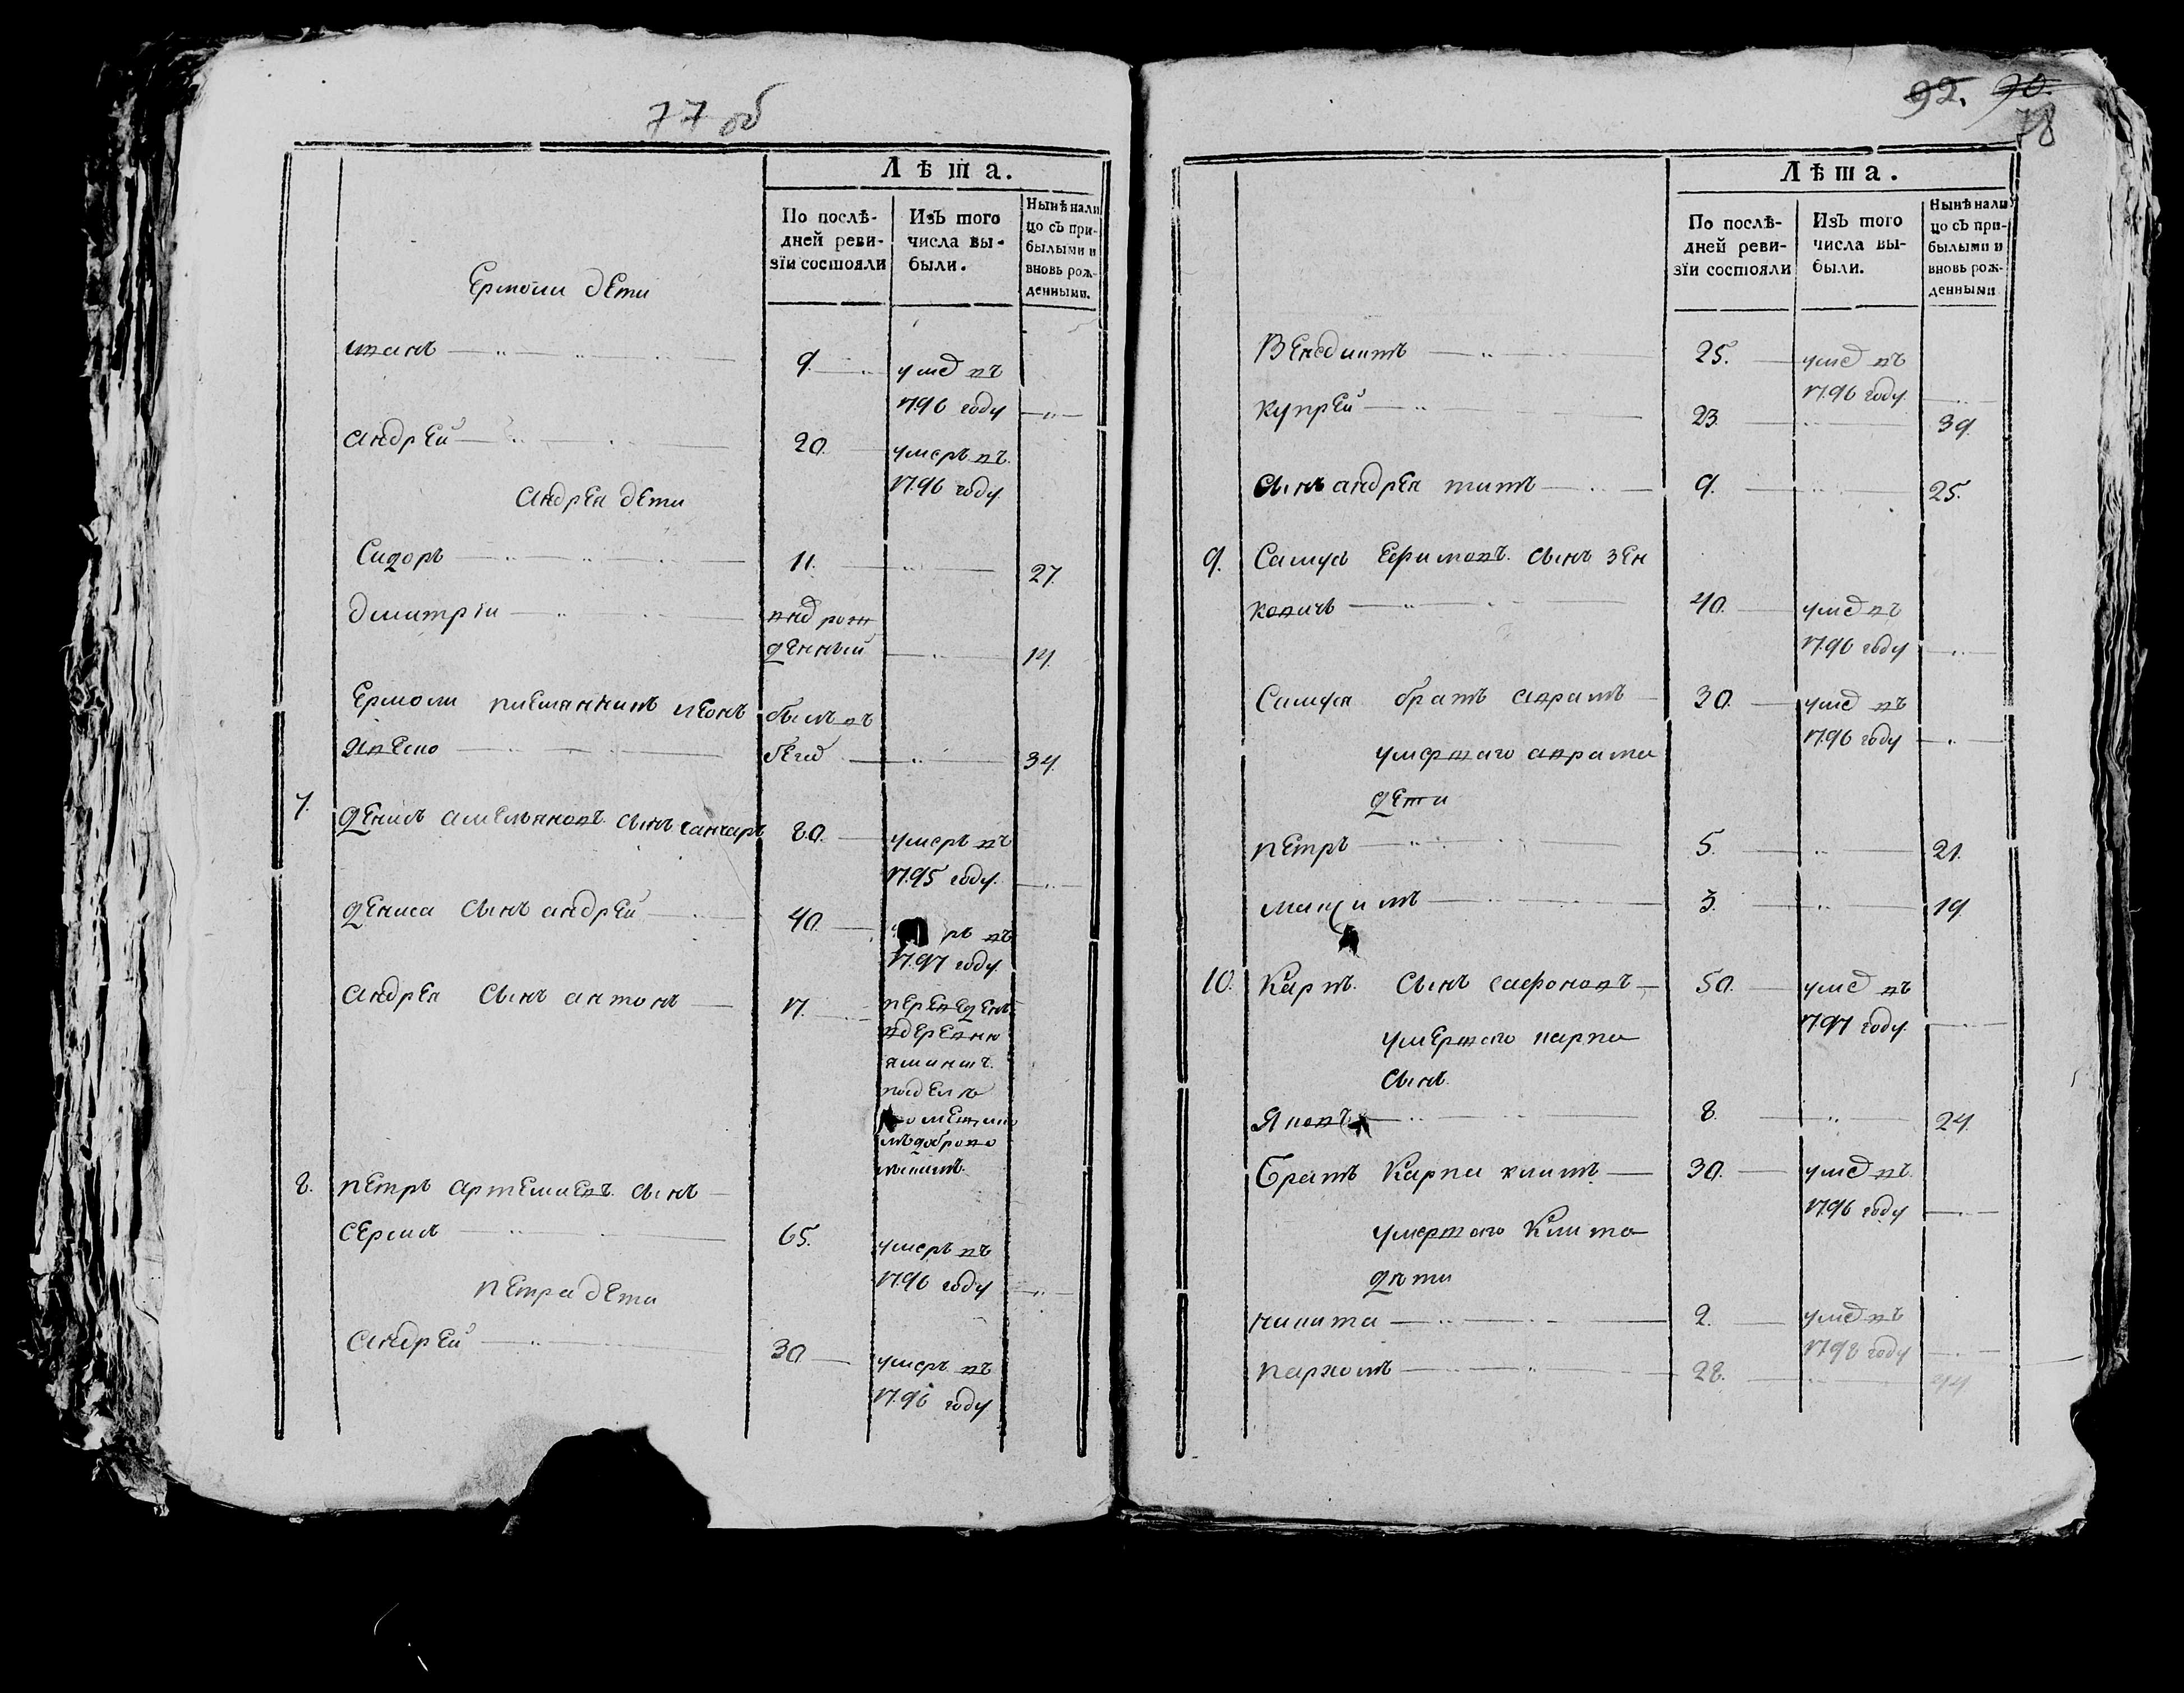 77 об
Лѣта.
По послѣ-
дней реви-
зїи состояли
Изъ того
числа вы-
были.
Нынѣ нали
цо съ при-
былыми и
вновь рож-
денными.
Ермоли дети
иванъ
9.
умер въ
1796 году
андрей
20.
умеръ въ
1796 году
андрея дети
Сидоръ
11.
27
дмитрїй
денный
14.
Ермоли племянникъ леонъ
былъ въ
бегах
34
7.
денисъ амельяновъ сынъ ганчаръ
80.
умеръ въ
1795 году.
дениса сынъ андрей
40.
ръ въ
1797 году
андрея сынъ антонъ
17.
переведенъ
в деревню
8.
петръ артемиевъ сынъ
65.
умеръ въ
1796 году
петра дети
андрей
30
умеръ въ
1796 году
92. 90.
78
Лѣта.
По послѣ-
дней реви-
зїи состояли
Изъ того
числа вы-
были.
Нынѣ нали
цо съ при-
былыми и
вновь рож-
денными
Венедиктъ
25.
умер въ
1796 году.
купрей
23.
39.
сынъ андрея титъ
9.
25.
9.
Самусь Ефимовъ сынъ зен
ковичъ
40.
умер въ
1796 году
Самуся братъ аврамъ
30.
умер въ
1796 году
умертаго аврама
дети
петръ
5.
21.
максимъ
3.
19
10.
Карпъ сынъ сафоновъ
50.
умер въ
1797 году.
умертаго карпа
сынъ
Яковъ
8.
24.
Братъ Карпа климъ
30.
умер въ
1796 году
умертаго Клима
дѣти
никита
2.
умер въ
1798 году
пархомъ
28.
44